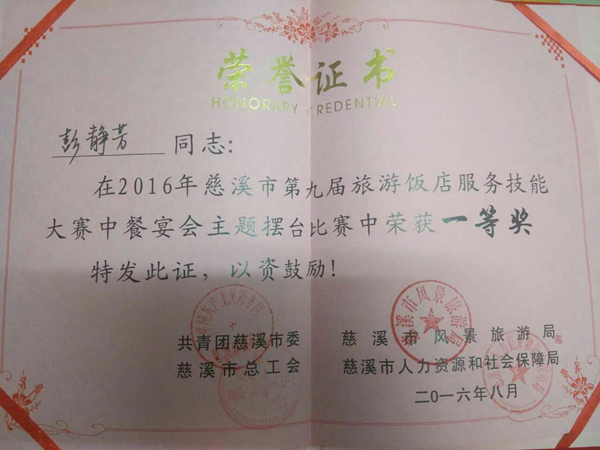 荣誉证书
HONORARY CREDENTIAL
彭静芳 同志:
在2016年慈溪市第九届旅游饭店服务技能
大赛中餐宴会主题摆台比赛中荣获一等奖
特发此证，以资鼓励!
共青团慈溪市委 慈溪市风景旅游局
慈溪市总工会 慈溪市人力资源和社会保障局
二0一六年八月
慈溪市风景旅游局